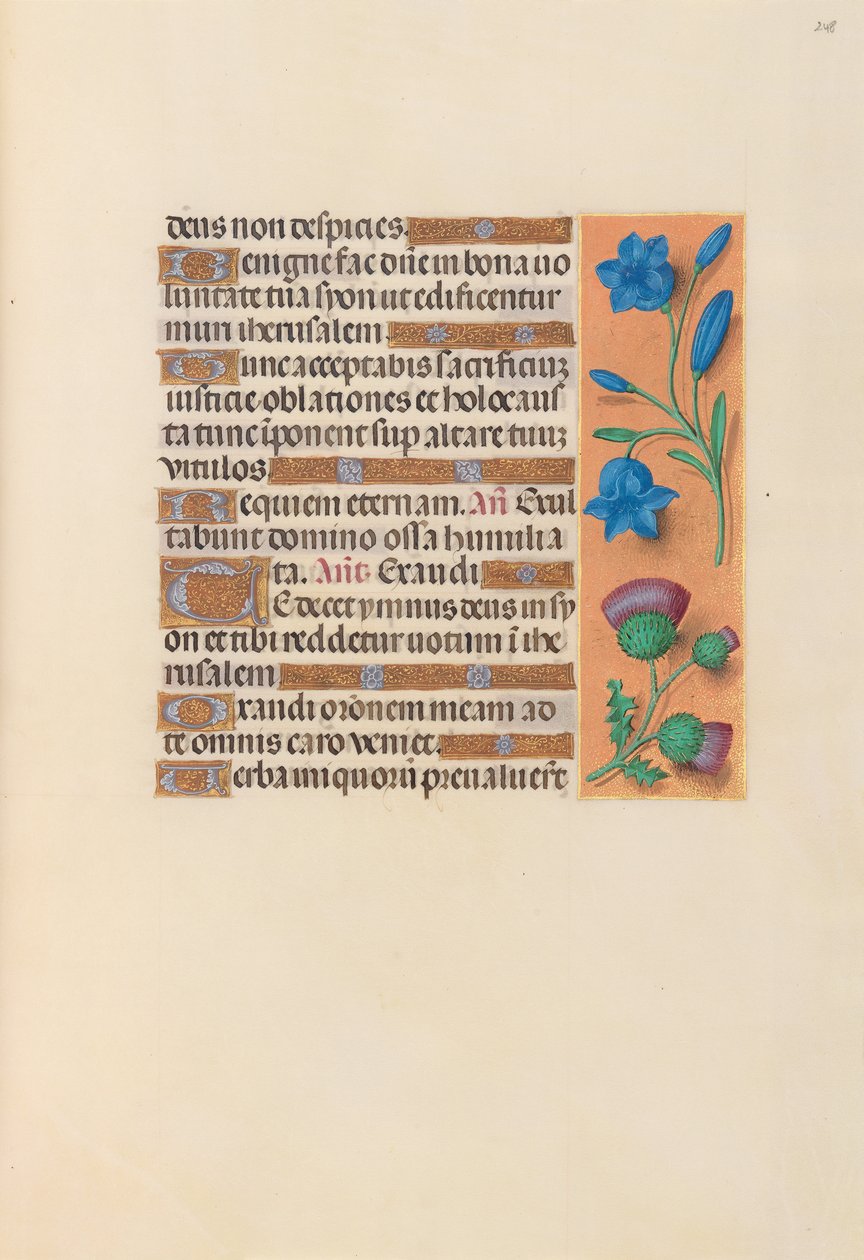 248
deus non despicies.
Benigne fac dn̄e in bona uo
luntate tua syon ut edificentur
muri iherusalem
Tunc acceptabis sacrificiuꝫ
iusticie oblationes et holocaus
ta tunc īponent suꝑ altare tuuꝫ
vitulos.
Requiem eternam. Añ Exul
tabunt domino ossa humilia
ta. Añt. Exaudi
TE decet ymnus deus in sy
on et tibi reddetur uotum ī ihe
rusalem
Exaudi orōnem meam ad
te omnis caro veniet.
Verba iniquorū preualuer̄t